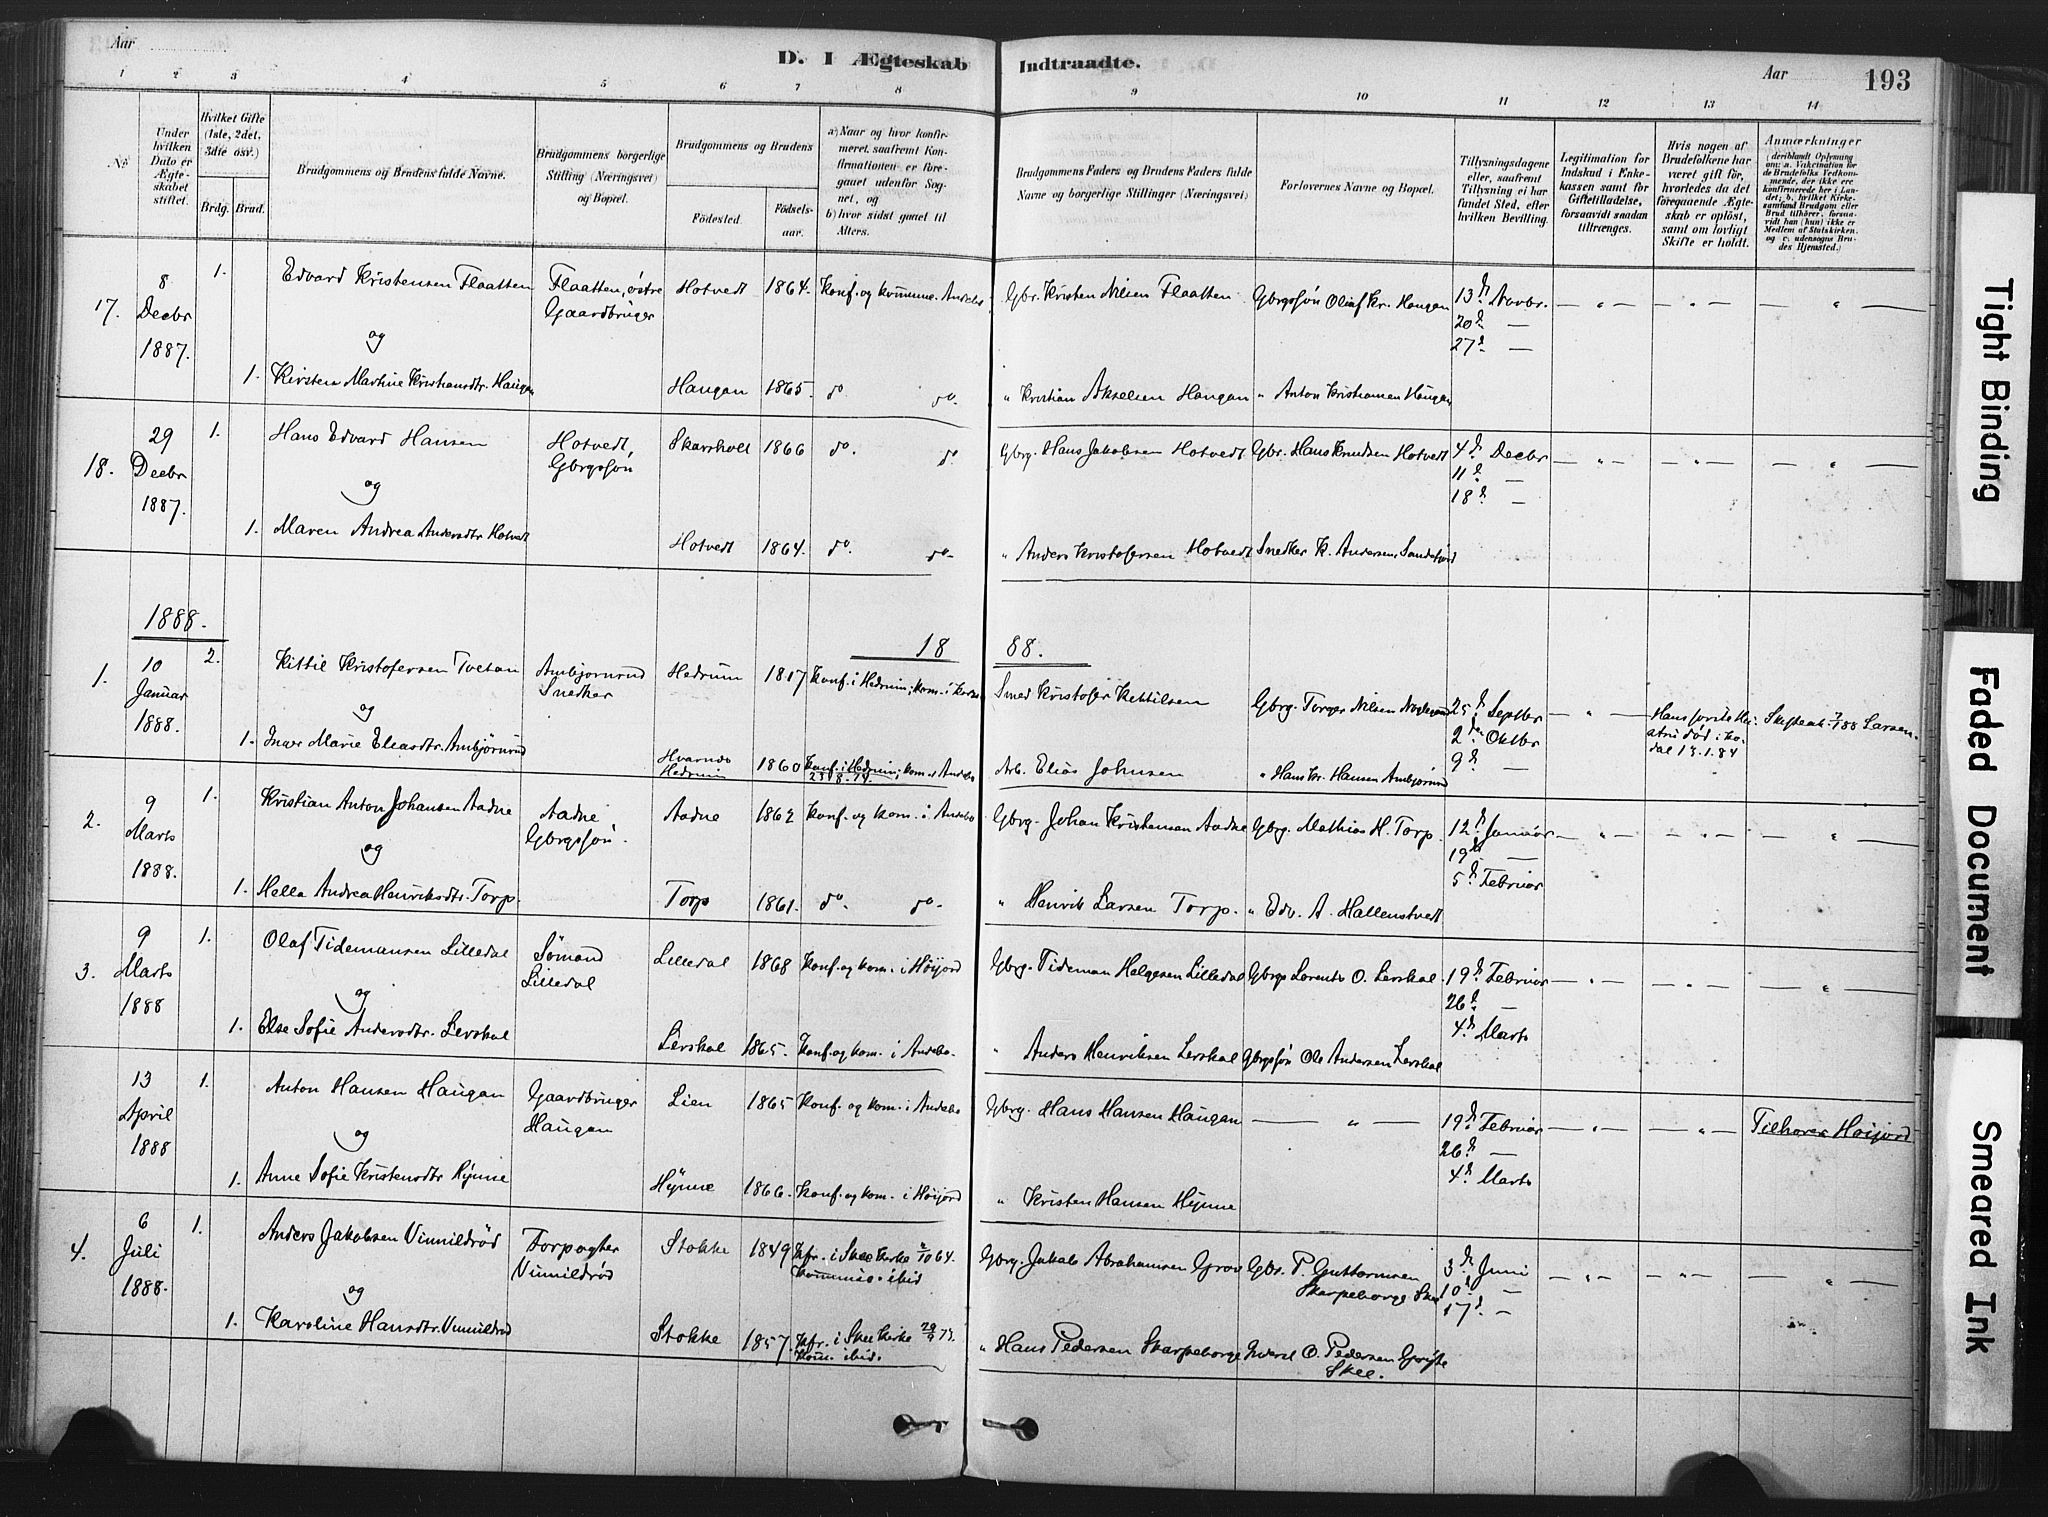 Aar
D. I Ægteskab Indtraadte.
Aar
193
1 2 3 4 5 6 7 8 9 10 11 12 13 14
No
Under hvilken Dato er Ægteskabet stiftet.
Hvilket Gifte (1ste, 2det, 3die osv.)
Brdg. Brud.
Brudgommens og Brudens fulde Navne.
Brudgommens borgerlige Stilling (Næringsvei) og Bopæl.
Brudgommens og Brudens
Fødested.
Fødselsaar.
a) Naar og hvor konfirmeret, saafremt Konfirmationen er foregaaet udenfor Sognet, og
b) hvor sidst gaaet til Alters.
Brudgommens Faders og Brudens Faders fulde Navne og borgerlige Stillinger (Næringsvei)
Forlovernes Navne og Bopæl.
Tillysningsdagene eller, saafremt Tillysning ei har fundet Sted, efter hvilken Bevilling.
Legitimation for Indskud i Enkekassen samt for Giftetilladelse, forsaavidt saadan tiltrænges.
Hvis nogen af Brudefolkene har været gift før, hvorledes da det foregaaende Ægteskab er opløst, samt om lovligt Skifte er holdt.
Anmærkninger
(deriblandt Oplysning om: a. Vakcination for de Brudefolks Vedkommende, der ikke ere konfirmerede her i Landet; b. hvilket Kirkesamfund Brudgom eller Brud tilhører, forsaavidt han (hun) ikke er Medlem af Statskirken, og c. udensogns Brudes Hjemsted.)
17. 8 Decbr 1887. 1. Edvard Kristensen Flaatten Flaatten, østre Gaardbruger Hotvedt 1864. Konf. og kommune. Andebo. Gbr. Kristen Nilsen Flaatten Gbrgssøn Olaf Kr. Haugan 13d Novbr. 20d — 27d — — " — — " — "
og
1. Kirsten Martine Kristiansdtr. Haugan Haugan 1865. do. do. " Kristian Akselsen Haugan " Anton Kristiansen Haugan
18. 29 Decbr 1887. 1. Hans Edvard Hansen Hotvedt, Gbrgssøn Skarsholt 1866 do. do. Gbrg. Hans Jakobsen Hotvedt Gbr. Hans Knudsen Hotvedt 4d Decbr 11d — 18d — — " — — " — — " —
og
1. Maren Andrea Andersdtr Hotvedt Hotvedt 1864. do. do. " Anders Kristofersen Hotvedt Snedker K. Andersen, Sandefjord
1888.
18 88.
1. 10 Januar 1888. 2. Kittil Kristofersen Tvetan Ambjørnrud Snedker Hedrum 1817 Konf. i Hedrum; kom. i Smed Kristofer Kettilsen Gbrg. Torger Nilsen 25d Septbr 2den Oktbr 9d — — " — død i Kodal 13.1.84 Skifteatt. 7/1 88 Larsen.
og
1. Inger Marie Eliasdtr. Ambjørnrud Hvarnes Hedrum 1860 Konf. i Hedrum; kom. i Andebo Arb. Elias Johnsen " Hans Kr. Hansen Ambjørnrud
2. 9 Marts 1888. 1. Kristian Anton Johansen Aadne Aadne Gbrgssøn. Aadne 1862 Konf. og kom. i Andebo Gbrg. Johan Kristensen Aadne Gbrg. Mathias H. Torp. 12d Januar 19d — 5d. Februar — " — — " — — " —
og
1. Hella Andrea Henriksdtr. Torp. Torp 1861. do. do. " Henrik Larsen Torp. " Edv. A. Hallenstvedt
3. 9 Marts 1888 1. Olaf Tidemansen Lilledal Sømand Lilledal Lilledal 1868 Konf. og kom. i Høijord Gbrg. Tideman Helgesen Lilledal Gbrgr Lorents O. Lerskal. 19d Februar 26d — 4d Marts — " — — " — — " —
og
1. Else Sofie Andersdtr. Lerskal Lerskal 1865. Konf. og kom. i Andebo. " Anders Henriksen Lerskal Gbrgssøn Ole Andersen Lerskal
13 April 1888 1. Anton Hansen Haugan Gaardbruger Haugan Lien 1865 Konf. og kom. i Andebo Gbrg. Hans Hansen Haugan — " — 19d Februar 26d — 4d Marts — " — — " — Tilhører Høijord
og
1. Anne Sofie Kristensdtr Hynne Hynne 1866. Konf. og kom. i Høijord " Kristen Hansen Hynne
4. 6 Juli 1888. 1. Anders Jakobsen Vinnildrød Forpagter Vinnildrød Stokke 1849 Kfr. i Skee Kirke 2/10 64. Kommun. ibid Gbrg. Jakob Abrahamsen Grav Gbr. P. Guttormsen Skarpeborge Skee 3d Juni 10d — 17d — — " — — " — — " —
og
1. Karoline Hansdtr. Vinnildrød Stokke 1857. Kfr. i Skee Kirke Kom. ibid. " Hans Pedersen Skarpeborge O. Pedersen Skee.
Tight Binding
Faded Document
Smeared Ink